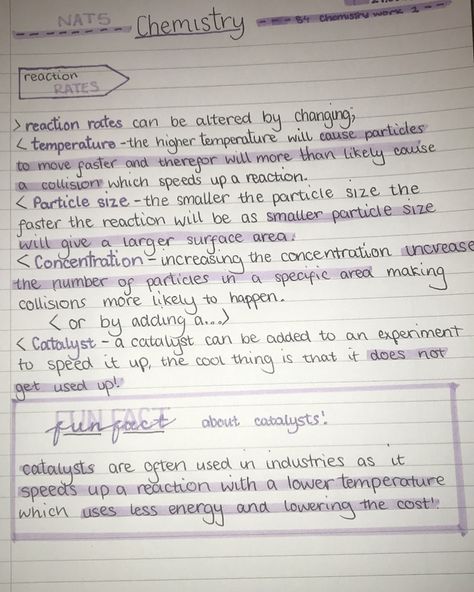 NAT5 Chemistry S4 Chemistry work 1
reaction
RATES
> reaction rates can be altered by changing;
< temperature - the higher temperature will cause particles
to move faster and therefor will more than likely cause
a collision which speeds up a reaction.
< Particle size - the smaller the particle size the
faster the reaction will be as smaller particle size
will give a larger surface area.
< Concentration - increasing the concentration increase
the number of particles in a specific area making
collisions more likely to happen.
< or by adding a...>
< Catalyst - a catalyst can be added to an experiment
to speed it up, the cool thing is that it does not
get used up!
FUN FACT
fun fact about catalysts!
catalysts are often used in industries as it
speeds up a reaction with a lower temperature
which uses less energy and lowering the cost!